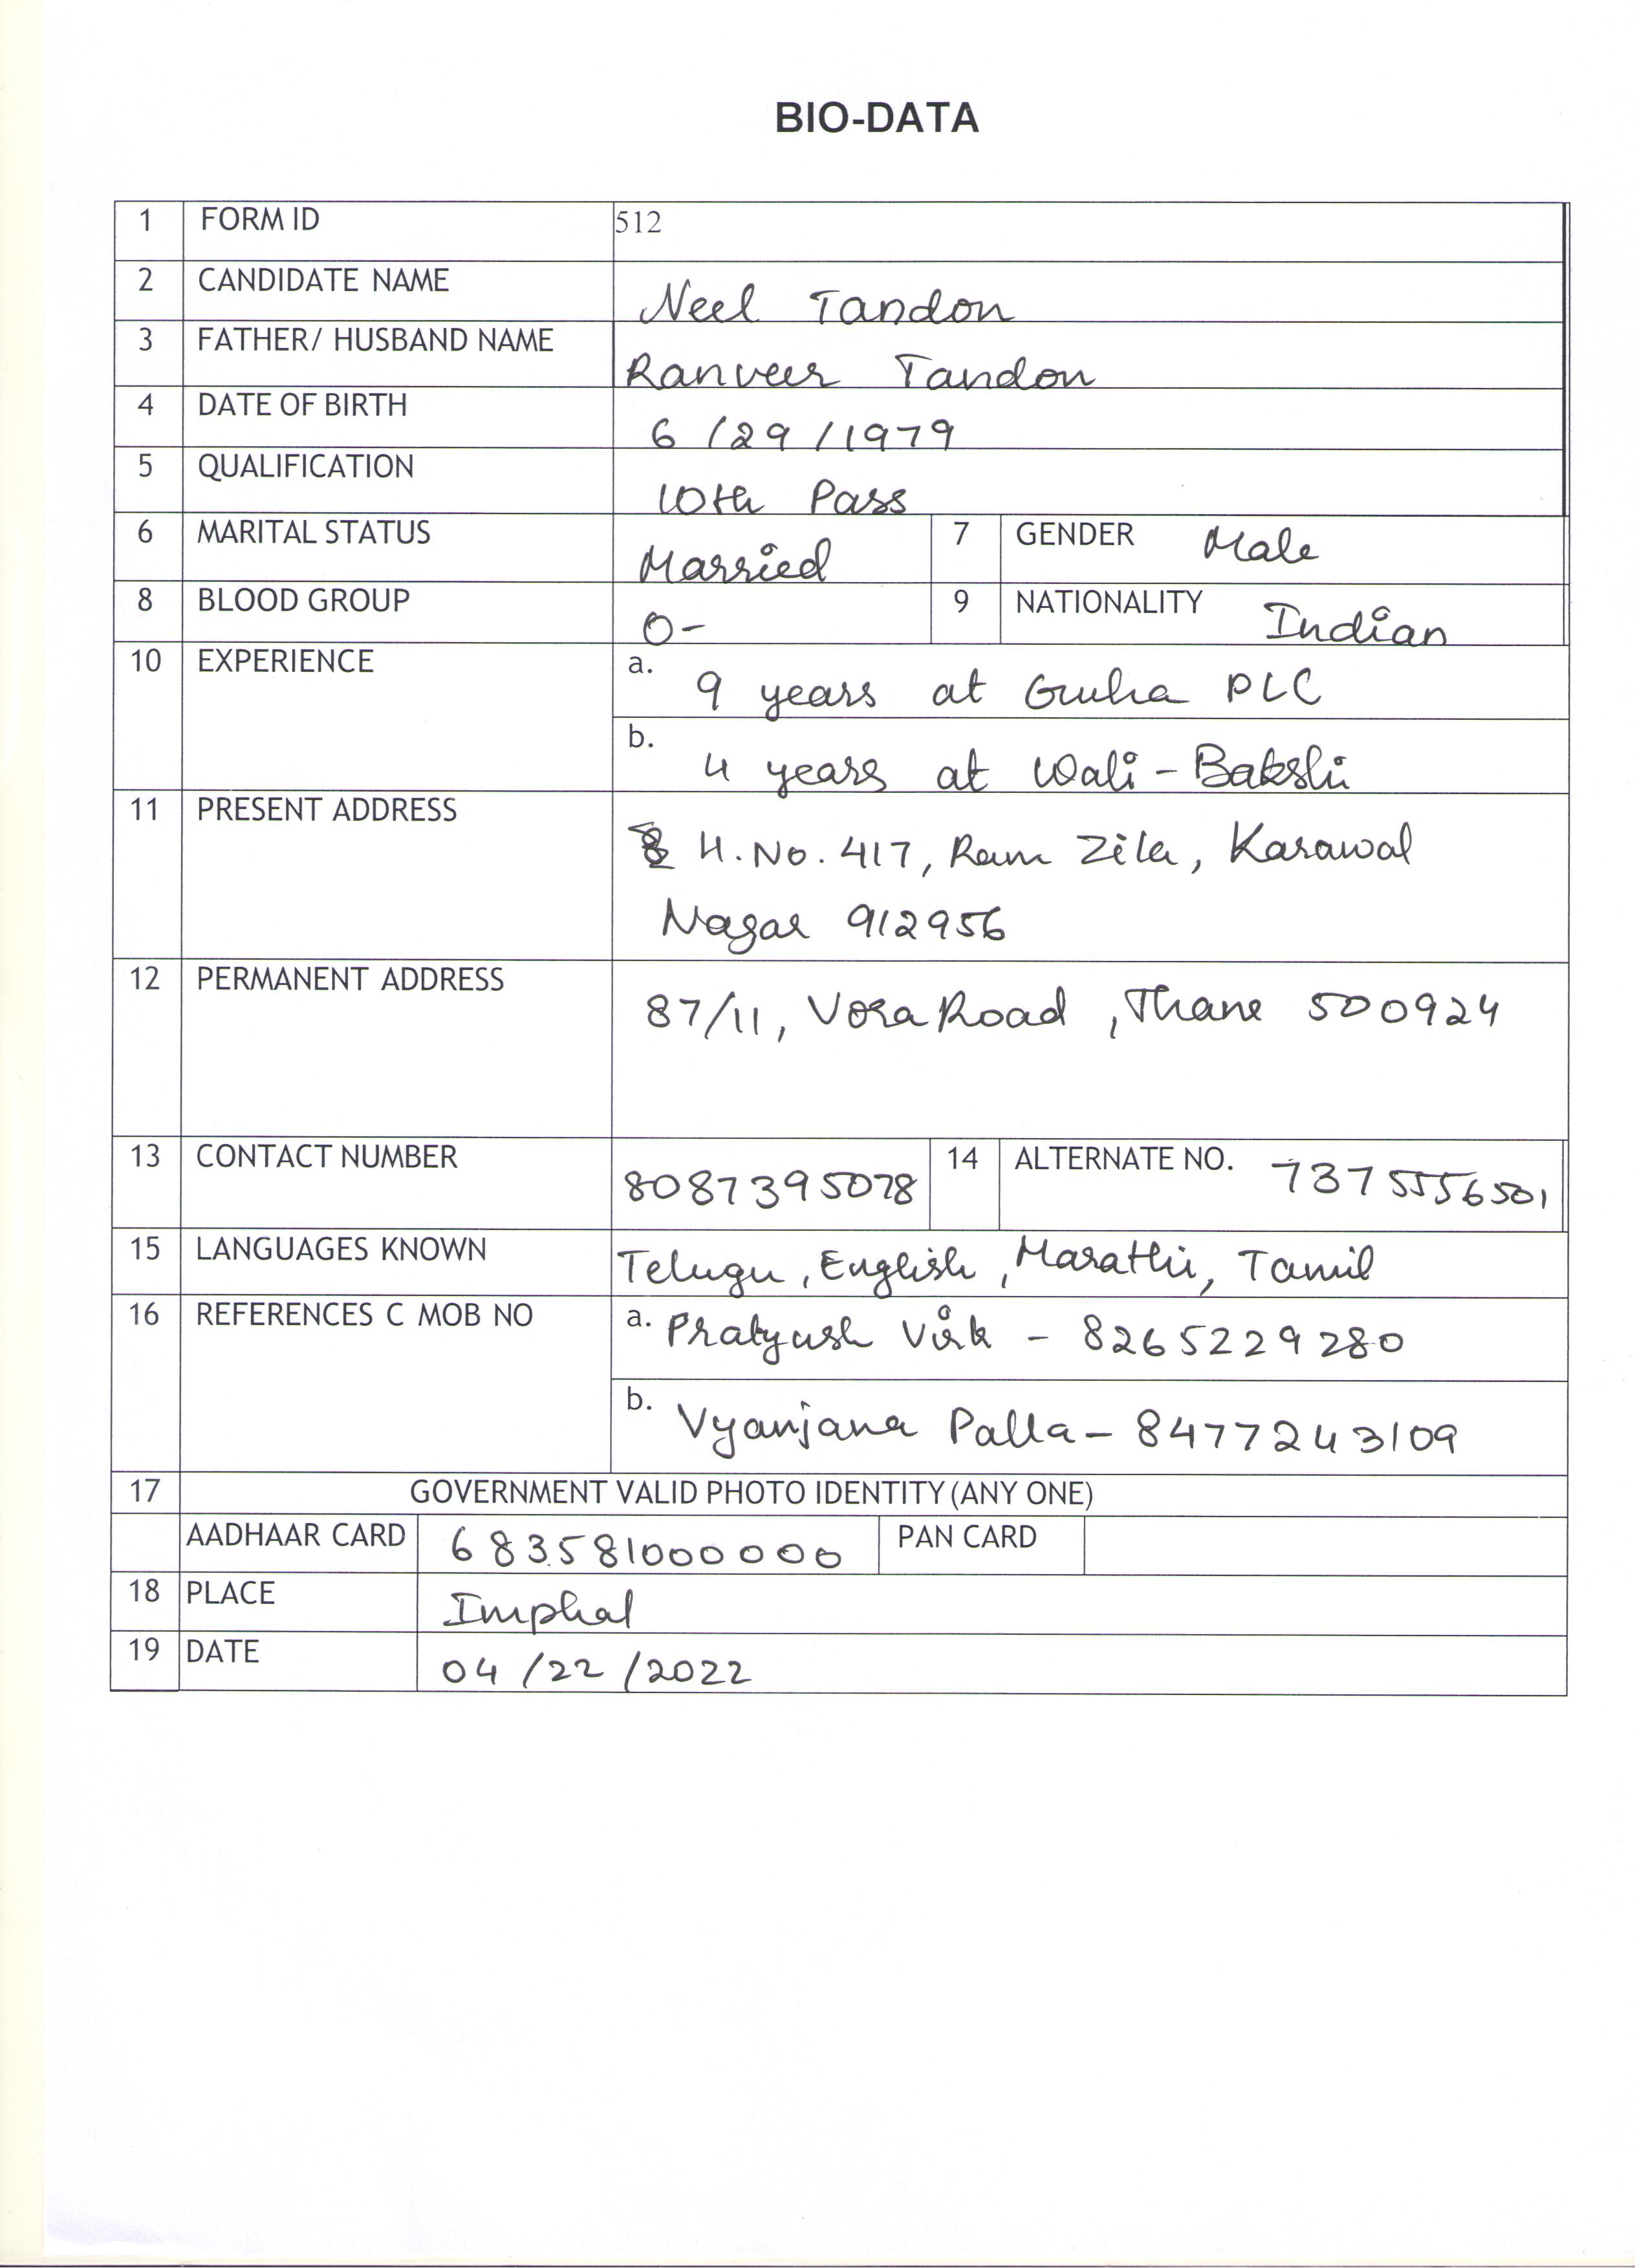 BIO-DATA
1 FORM ID 512
2 CANDIDATE NAME Neel Tandon
3 FATHER/ HUSBAND NAME Ranveer Tandon
4 DATE OF BIRTH 6/29/1979
5 QUALIFICATION 10th Pass
6 MARITAL STATUS Married 7 GENDER Male
8 BLOOD GROUP O- 9 NATIONALITY Indian
10 EXPERIENCE a. 9 years at Guha PLC
b. 4 years at Wali-Bakshi
11 PRESENT ADDRESS H.No. 417, Ram Zila, Karawal
Nagar 912956
12 PERMANENT ADDRESS 87/11, Vora Road, Thane 500924
13 CONTACT NUMBER 8087395078 14 ALTERNATE NO. 7375556501
15 LANGUAGES KNOWN Telugu, English, Marathi, Tamil
16 REFERENCES C MOB NO a. Pratyush Virk - 8265229280
b. Vyanjana Palla - 8477243109
17 GOVERNMENT VALID PHOTO IDENTITY (ANY ONE)
AADHAAR CARD 683581000000 PAN CARD
18 PLACE Imphal
19 DATE 04/22/2022